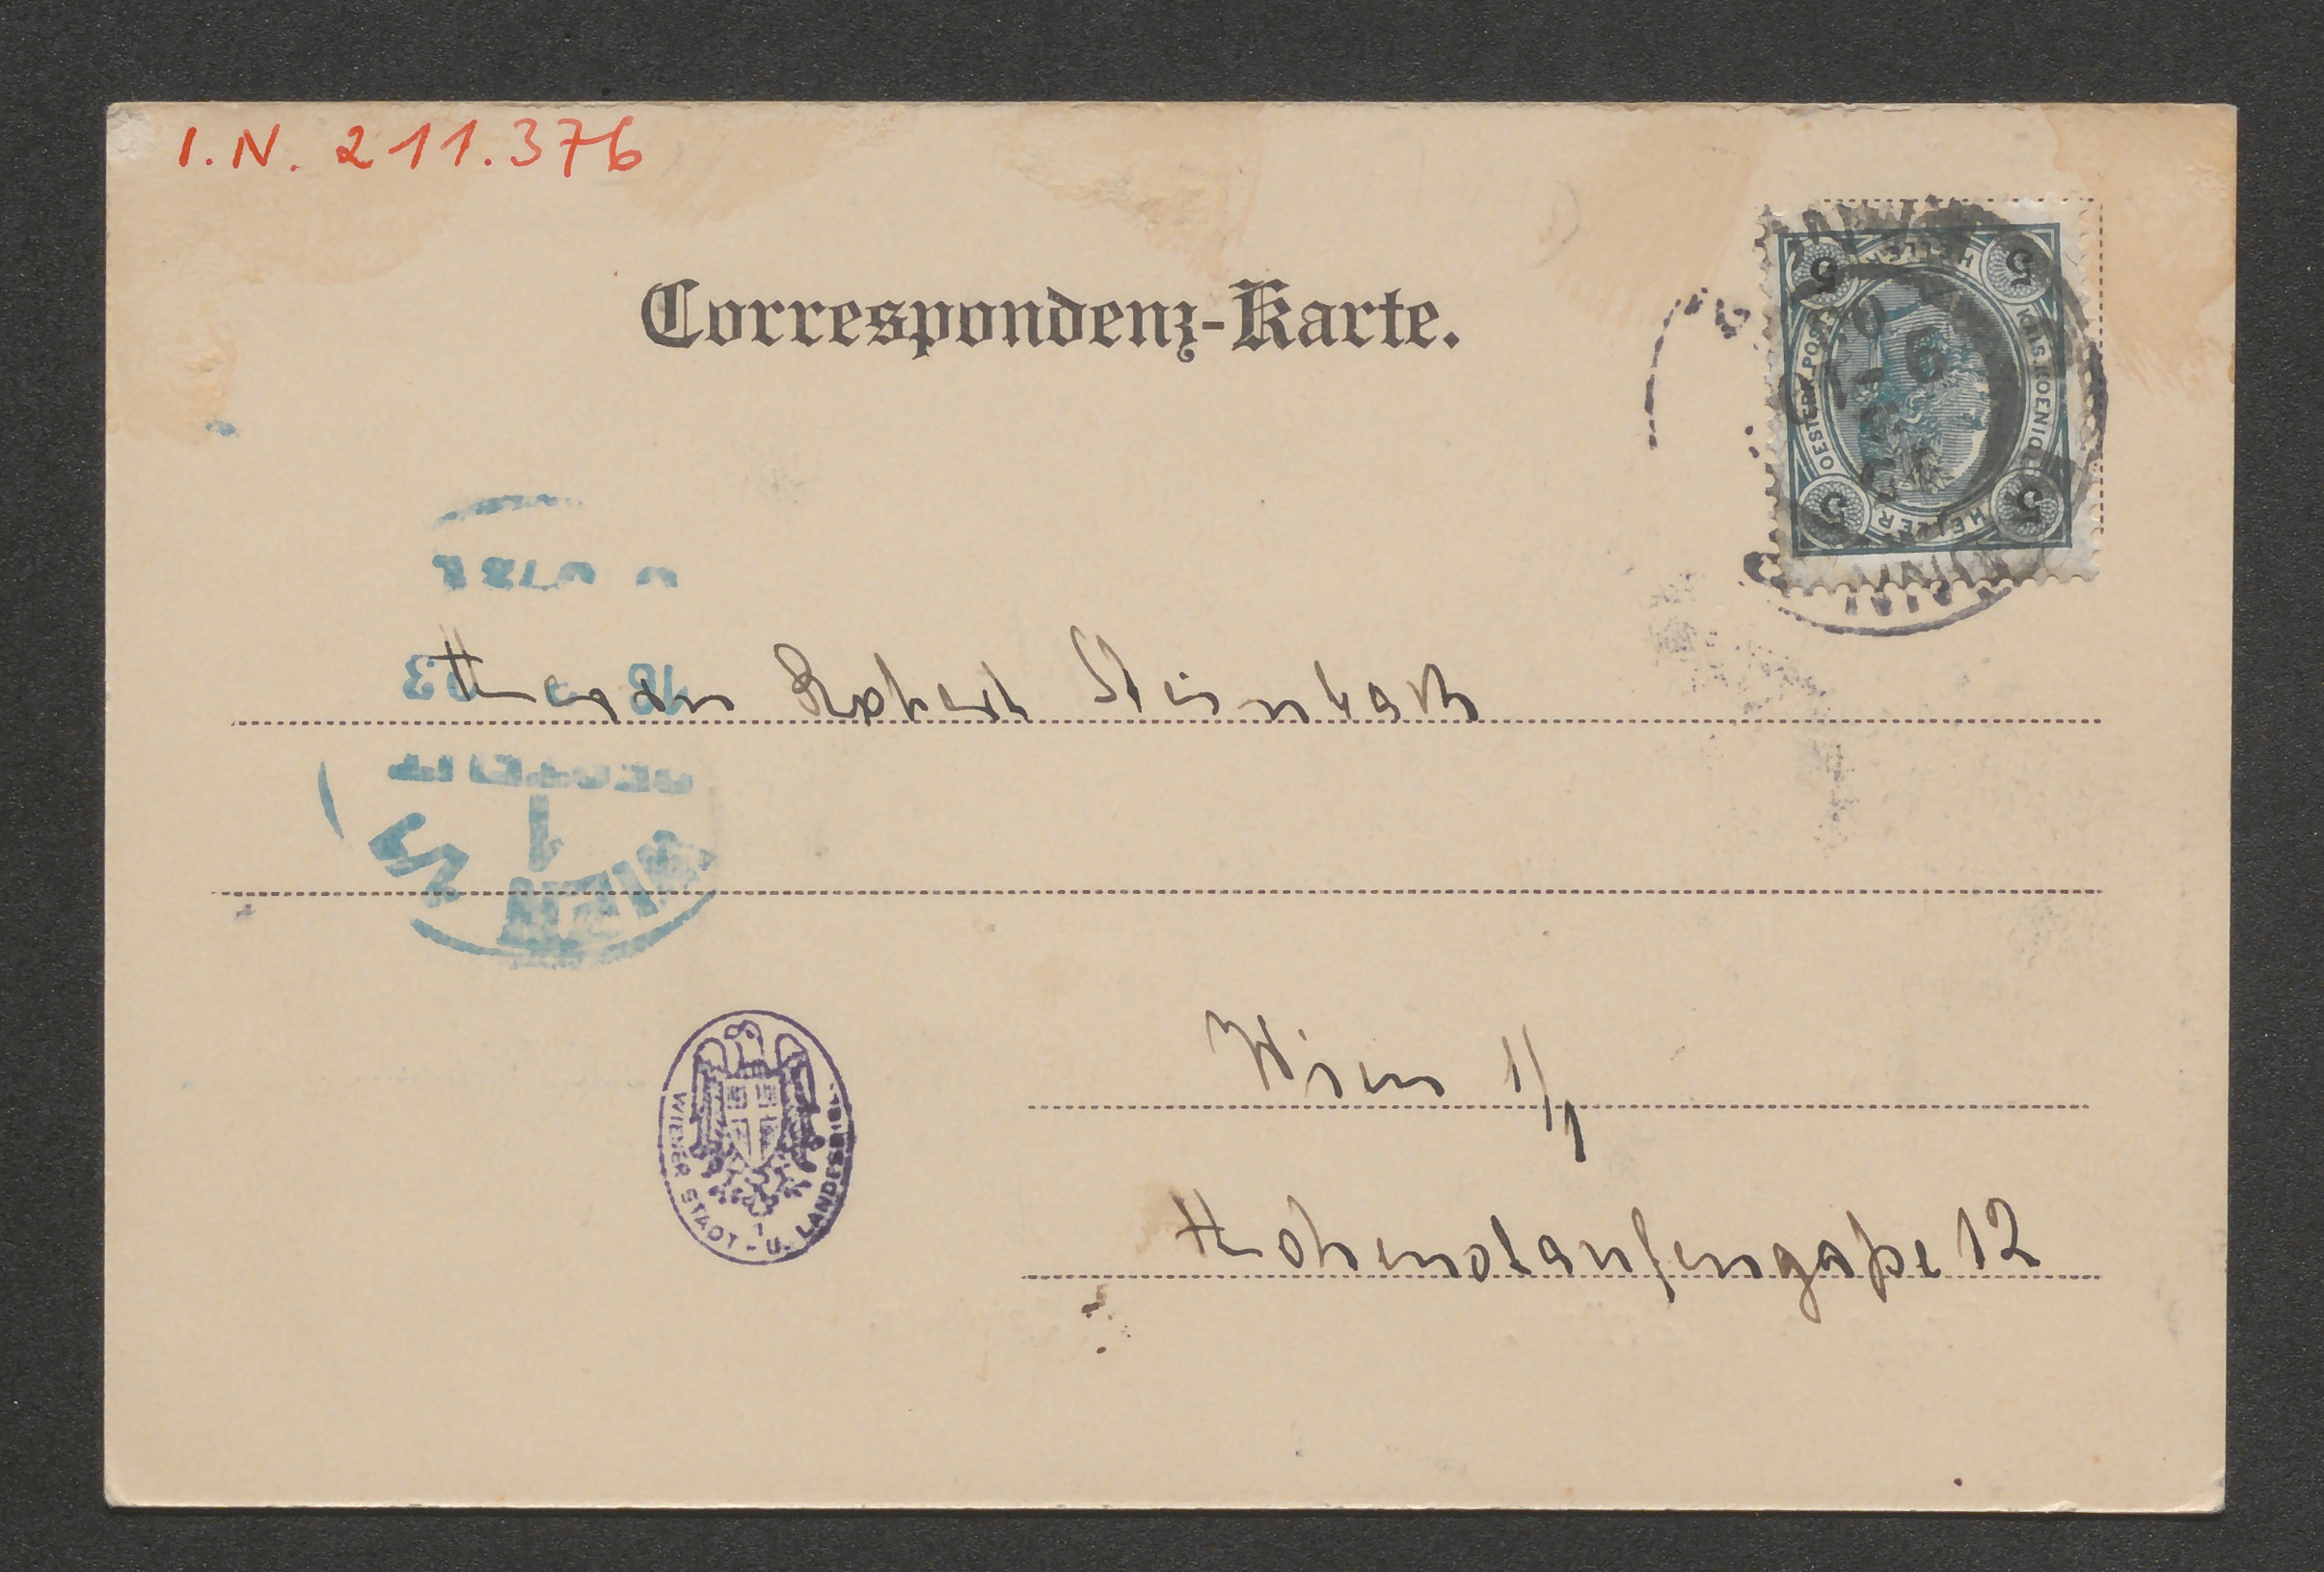 I.N. 211.376
Correspondenz-Karte.
5 HELLER 5
OESTERR. POST
KAIS. KOENIGL.
5 HELLER 5
Herrn Robert Steinbach
WIEN
1
Wien 1/1
WIENER STADT - U. LANDESBIBL.
Hohenstaufengaße 12